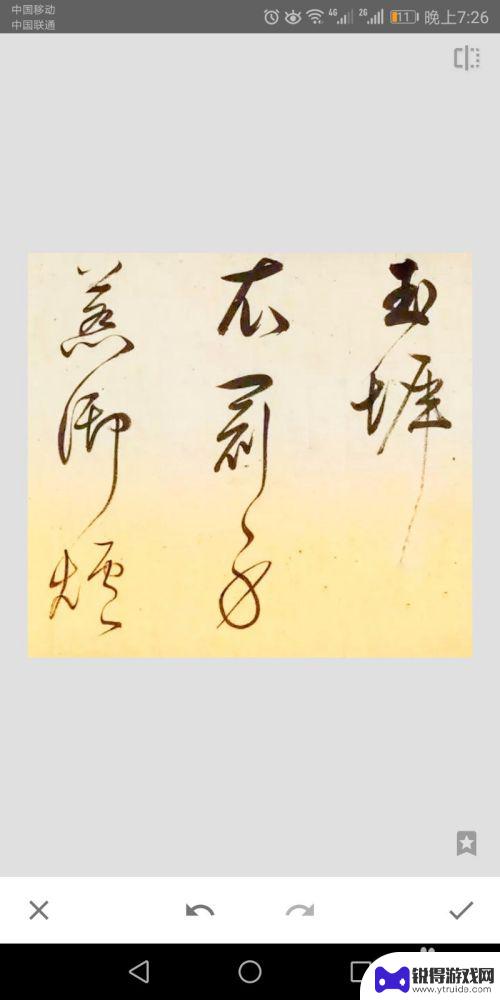 中国移动
中国联通
4G
2G
11
晚上7:26
玉墀
衣冠身
惹御爐
锐得游戏网
www.ytruida.com